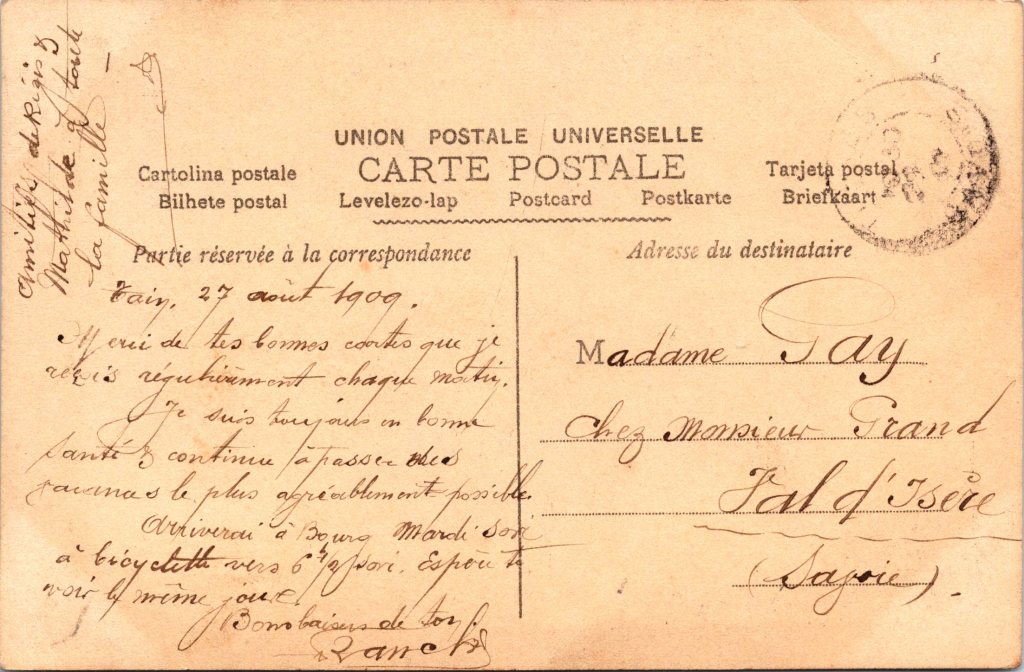 Amitiés de Régis &
Mathilde & toute
la famille
UNION POSTALE UNIVERSELLE
CARTE POSTALE
Cartolina postale
Tarjeta postal
Bilhete postal
Levelezo-lap
Postcard
Postkarte
Briefkaart
Partie réservée à la correspondance
Adresse du destinataire
Tain, 27 août 1909.
Merci de tes bonnes cartes que je
reçois régulièrement chaque matin.
Je suis toujours en bonne
santé & continue à passer mes
vacances le plus agréablement possible.
Arriverai à Bourg Mardi soir
à bicyclette vers 6 1/2 soir. Espère te
voir le même jour.
Bons baisers de ton
Madame Gay
Chez Monsieur Grand
Val d'Isère
(Savoie)